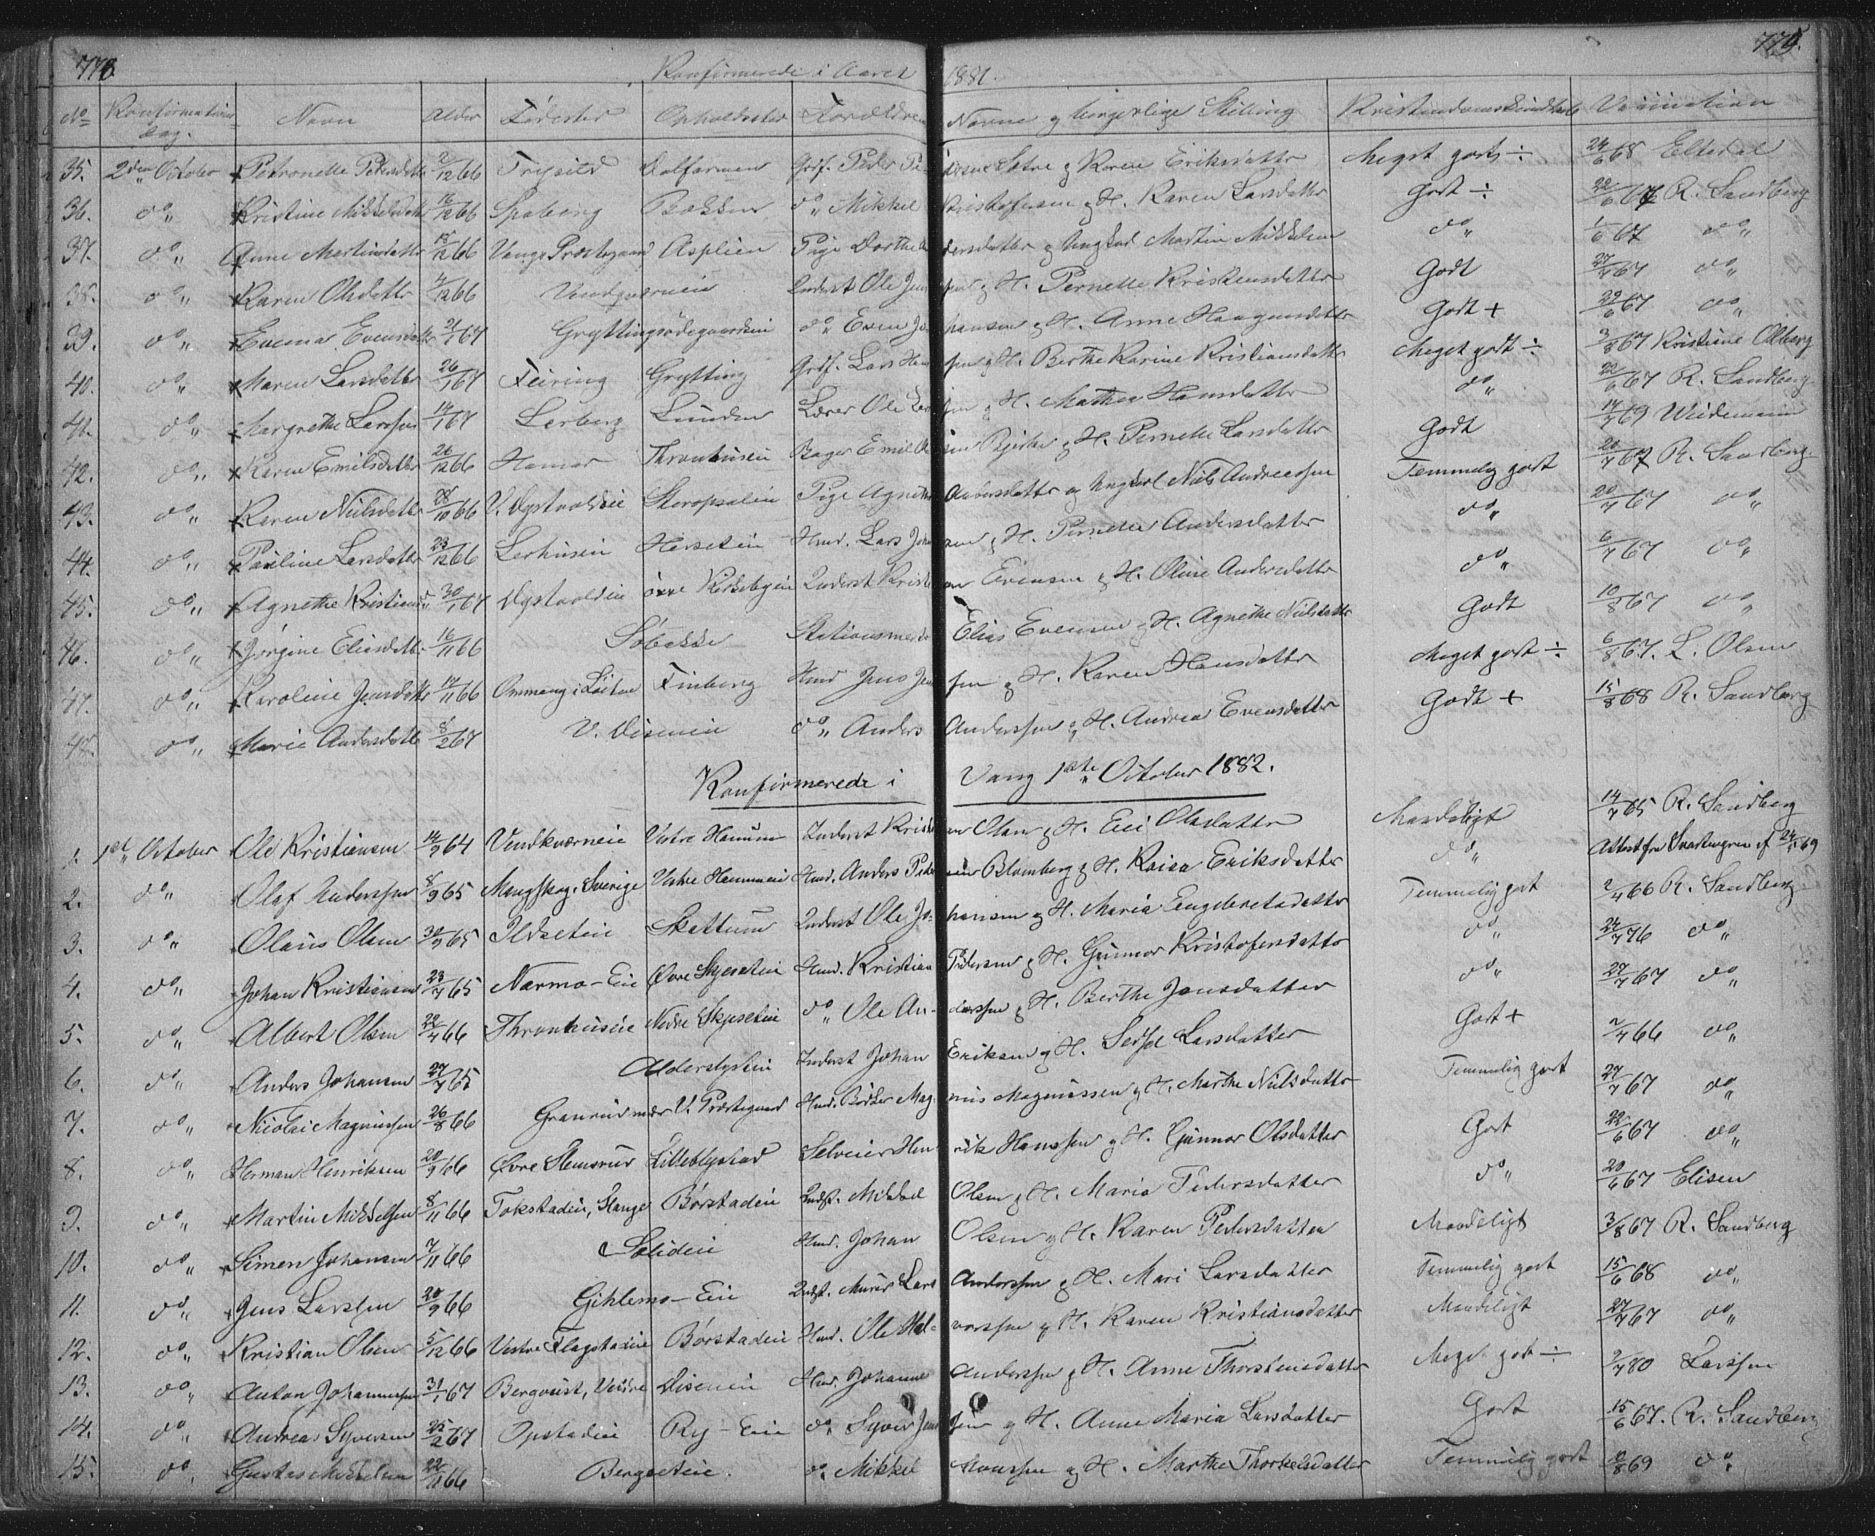 778. Konfirmerede i Aaret 1881. 779.
No Konfirmations Dag. Navn Alder Fødested Opholdssted Forældrenes Navne og borgerlige Stilling Kristendomskundskab Vaccination
35. 2den October Petronelle Pedersdatter 2/12 66 Trysild Dalfarmen Grdf. Peder Pedersen Sætre og Karen Eriksdatter Meget godt ÷ 24/6 68 Elterdal
36. do „ Kristine Mikkelsdatter 12/12 66 Spaberg Bakken do „ Mikkel Kristofersen og H. Karen Larsdatter Godt ÷ 22/6 67 R. Sandberg
37. do „ Anne Martinsdatter 12/12 66 Vangs Præstegaard Asplien Pige Dorthe dersdatter og Ungkarl Martin Mikkelsen do „ 1/6 67 do „
38. do „ Karen Olsdatter 4/12 66 Vendqværneie Inderst Ole Jensen og H. Pernelle Kristensdatter Godt 27/7 67 do „
39. do „ Evena Evensdatter 21/1 67 Gryttingsødegaardseie do „ Even Johansen og H. Anne Haagensdatter Godt + 29/6 67 do „
40. do „ Maren Larsdatter 26/1 67 Feiring Grytting Grdf. Lars Hansen og H. Berthe Karine Kristiansdatter Meget godt ÷ 3/8 67 Kristine Olberg
41. do „ Margrethe Larssen 14/1 67 Lerberg Lunden Lærer Ole Larssen og H. Mathea Hansdatter do „ 22/6 67 R. Sandberg
42. do „ Karen Emilsdatter 26/12 66 Hamar Thronhuseie Bager Emil Bjerke og H. Pernelle Larsdatter Godt 17/7 69 Weidemann
43. do „ Karen Nielsdatter 28/10 66 V. Dystvoldeie Skaropsaleie Pige Agnethe Andersdatter og Ungkarl Niels Andreassen Temmelig godt 20/7 67 R. Sandberg
44. do „ Pauline Larsdatter 23/12 66 Lerhuseie Herseteie Hmd. Lars Johansen og H. Pernelle Andersdatter do „ 20/7 67 do „
45. do „ Agnethe Kristiansd. 30/1 67 Dystvoldeie øvre Kirkebyeie Inderst Kristian Evensen og H. Oline Andersdatter do „ 6/7 67 do „
46. do „ Jørgine Eliasdatter 16/11 66 Søbakke Stationsmester Elias Evensen og H. Agnethe Nielsdatter Godt 10/8 67 do „
47. do „ Karoline Jensdatter 14/11 66 Ommang i Løiten Finberg Hmd Jens Jensen og H. Karen Hansdatter Meget godt ÷ 6/8 67. L. Olsen
48. do „ Marie Andersdatter 8/2 67 V. Diseneie do „ Anders Anderssen og H. Andrea Evensdatter Godt + 15/8 68 R. Sandberg
Konfirmerede i Vang 1ste October 1882.
1. 1ste October Ole Kristiansen 14/9 64 Vendkværneie Vestre Hammeren Inderst Kristian Olsen og H. Eli Olsdatter Maadeligt 14/7 65 R. Sandberg
2. do „ Olaf Anderssen 8/9 65 Mangskog, Sverige Vestre Hammeren Hmd. Anders Pedersen Blomberg og H. Kaisa Eriksdatter do „ Attest fra
3. do „ Olaus Olsen 30/9 65 Ildseteie Skattum Inderst Ole Johansen og H. Maria Engebretsdatter Temmelig godt 2/7 66 R. Sandberg
4. do „ Johan Kristiansen 23/7 65 Narmo-Eie Øvre Skjeseteie Hmd. Kristian Pedersen og H. Gunnor Kristofersdatter do „ 24/7 76 do „
5. do „ Albert Olsen 22/4 66 Thronhuseie Nedre Skjeseteie do „ Ole Anderssen og H. Berthe Jensdatter do „ 27/7 67 do „
6. do „ Anders Johansen 27/7 65 Alderslysteie Inderst Johan Eriksen og H. Larsdatter Godt + 2/7 66 do „
7. do „ Nicolai Magnussen 26/8 66 Granrud nær V. Præstegaard Hmd. Bødker Magnus Magnussen og H. Marthe Nielsdatter Temmelig godt 27/7 67 do „
8. do „ Herman Henriksen 20/9 66 Øvre Stensrud Lilleblystad Selveier Henrik Hanssen og H. Gunnor Olsdatter Godt 22/6 67 do „
9. do „ Martin Mikkelsen 8/11 66 Tokstadeie, Stange Børstadeie Indst. Mikkel Olsen og H. Maria Pedersdatter do „ 20/6 67 Elisen
10. do „ Simen Johansen 7/11 66 Solideie Hmd. Johan Olsen og H. Karen Pedersdatter Maadeligt 3/8 67 R. Sandberg
11. do „ Jens Larssen 20/9 66 Gihlemo-Eie Indst. Murer Lars Anderssen og H. Mari Larsdatter Temmelig godt 15/6 68 do „
12. do „ Kristian Olsen 5/12 66 Vestre Flagstadeie Børstadeie Hmd. Ole Halvorssen og H. Karen Kristiansdatter Maadeligt 27/7 67 do „
13. do „ Anton Johannessen 31/1 67 Bergqvist, Vestre Diseneie Hmd. Johannes Anderssen og H. Anne Thorstensdatter Meget godt ÷ 2/7 80 Larssen
14. do „ Andreas Syversen 25/2 67 Opstadeie Ry-Eie do „ Syver Jenssen og H. Anne Maria Larsdatter Godt 15/6 67. R. Sandberg
15. do „ Gustav Mikkelsen 22/11 66 Bergseteie. do „ Mikkel Monssen og H. Marthe Thorkelsdatter Temmelig godt 10/8 69 do „